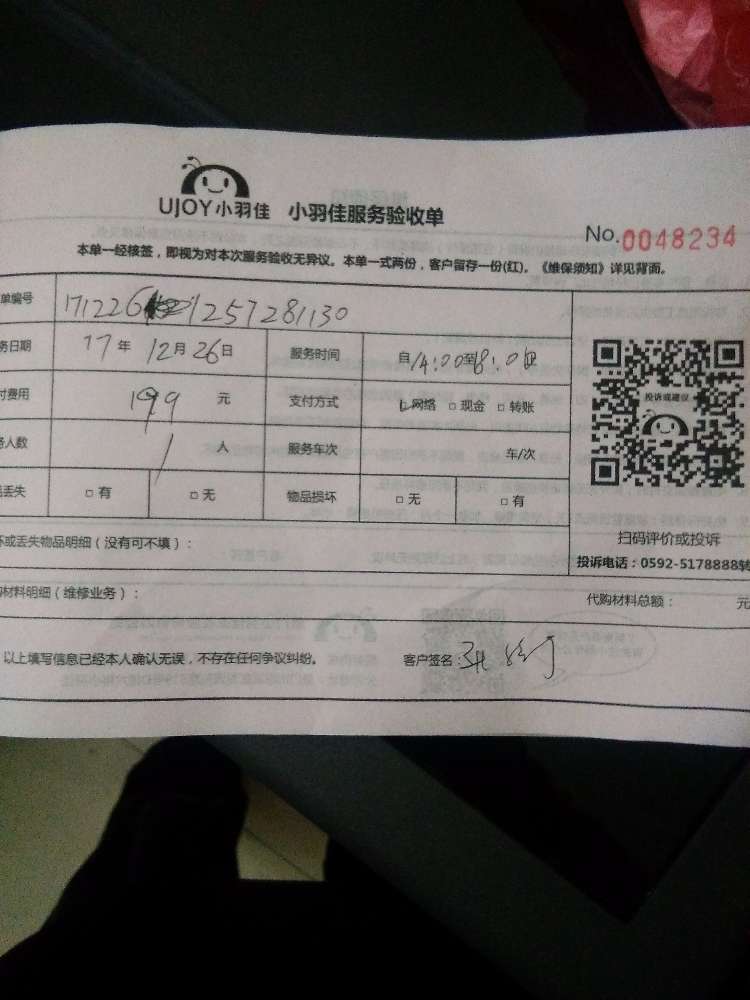 UJOY小羽佳 小羽佳服务验收单
No.0048234
本单一经核签，即视为对本次服务验收无异议。本单一式两份，客户留存一份(红)。《维保须知》详见背面。
单编号 171226 1257281130
务日期 17年12月26日 服务时间 自14:00至18:00止
付费用 199 元 支付方式 □网络 □现金 □转账
务人数 1 人 服务车次 车/次
丢失 □有 □无 物品损坏 □无 □有
投诉或建议
扫码评价或投诉
投诉电话：0592-5178888转
坏或丢失物品明细（没有可不填）：
购材料明细（维修业务）： 代购材料总额： 元
以上填写信息已经本人确认无误，不存在任何争议纠纷。 客户签名：